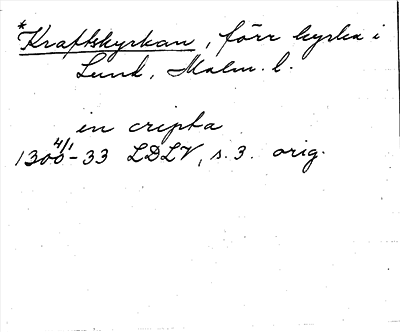 *Kraftskyrkan, förr kyrka i
Lund, Malm. l.
en cripta
1300 4/1 - 33 LDLV, s. 3. orig.